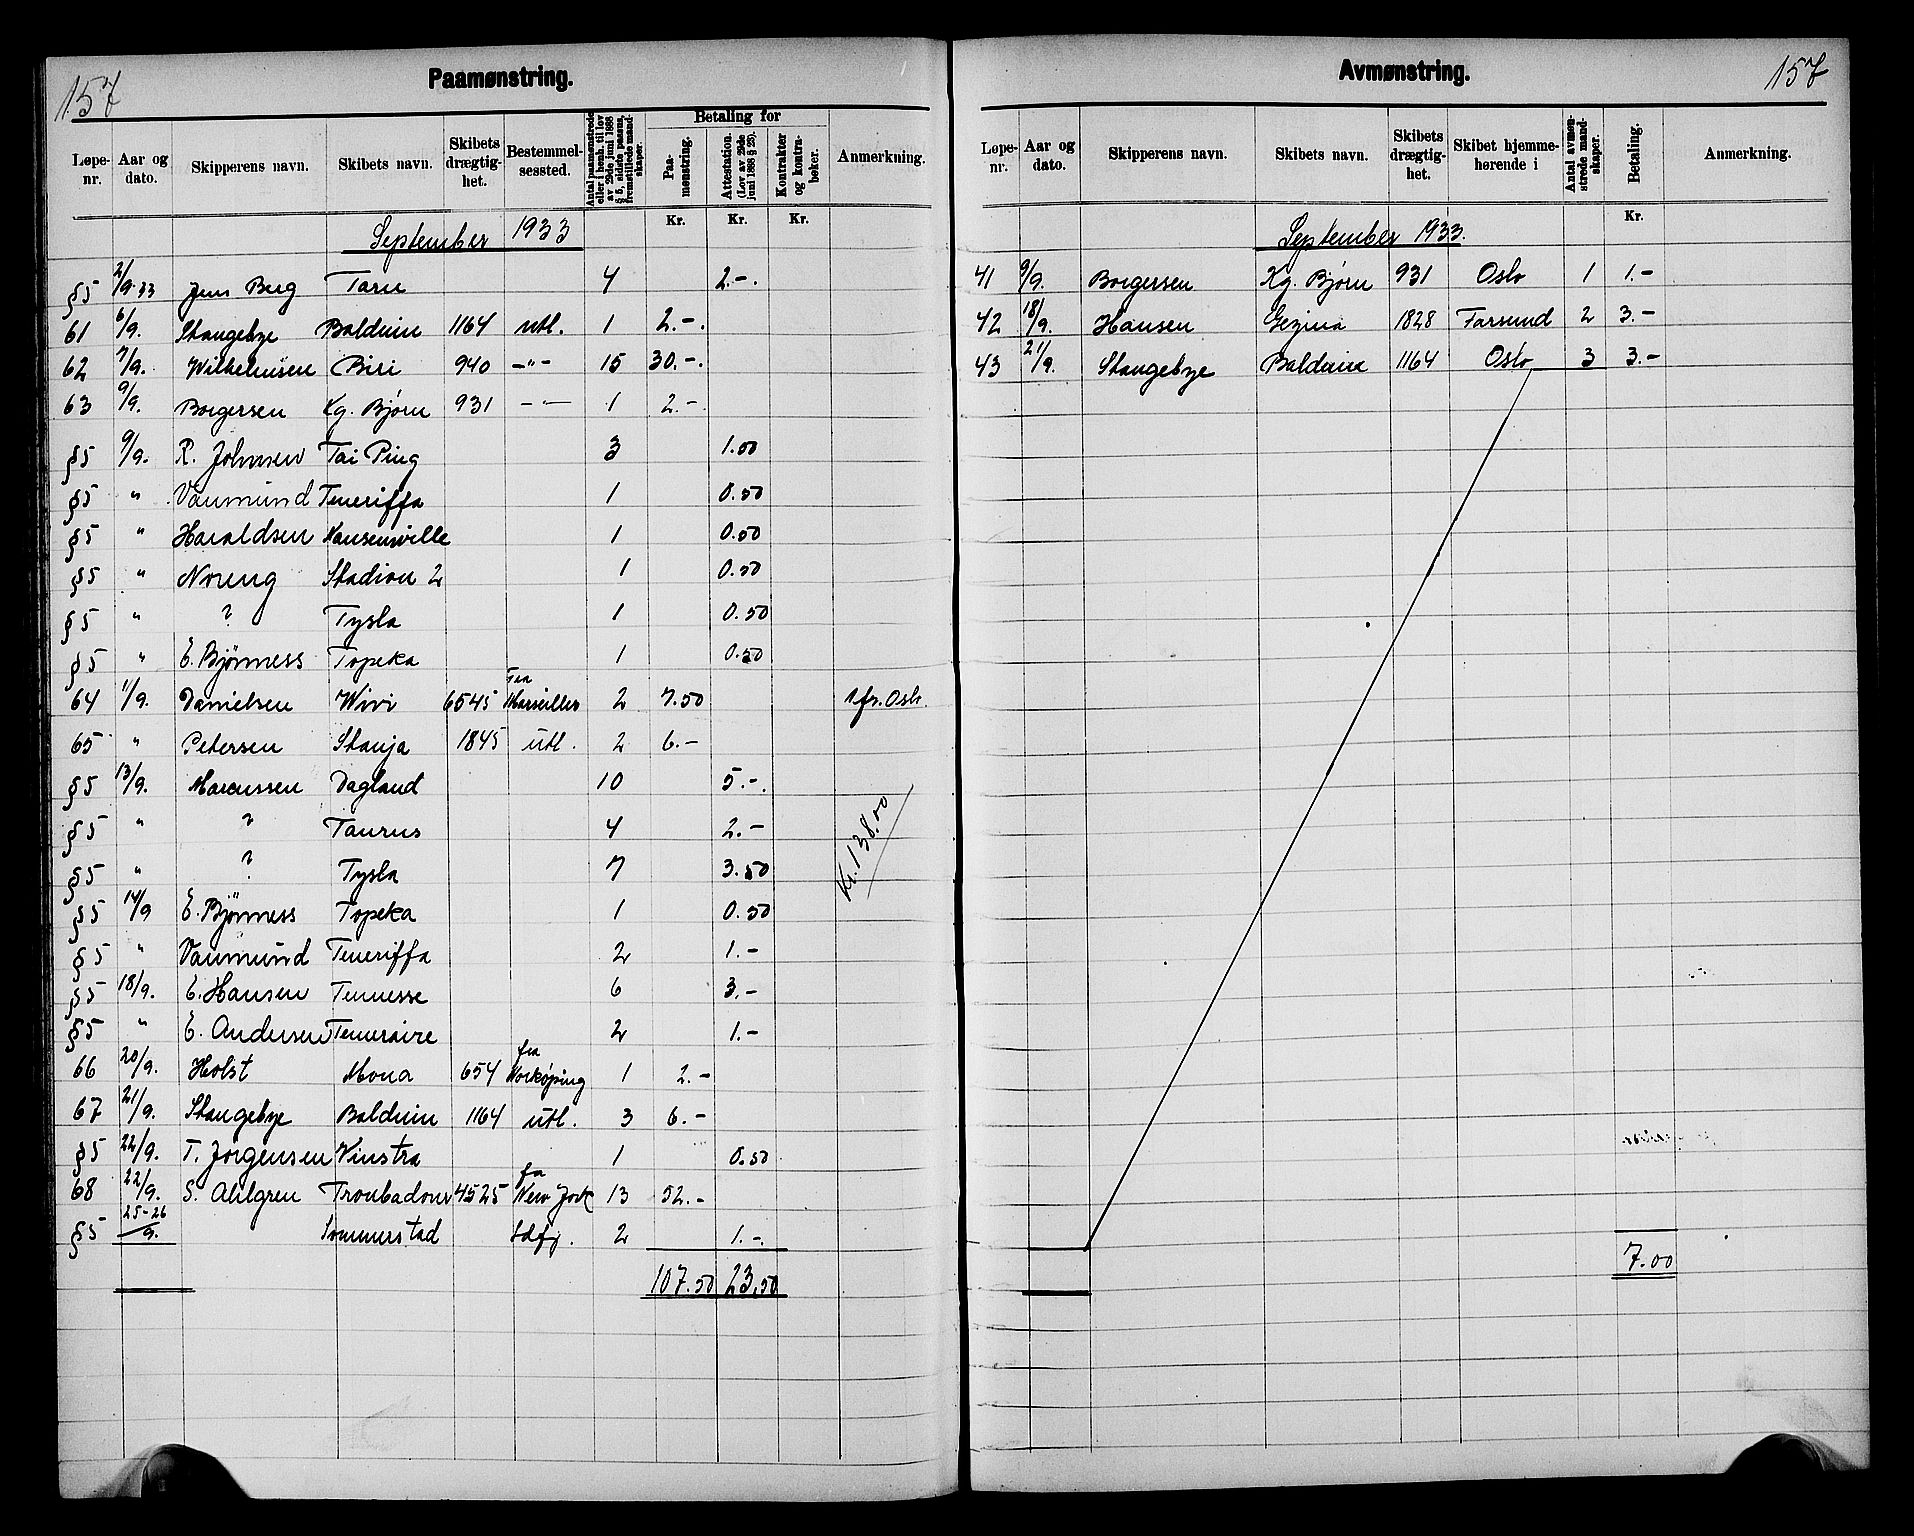 157
Paamønstring.
Løpe-nr. Aar og dato. Skipperens navn. Skibets navn. Skibets drægtig-het. Bestemmel-sessted. Antal paamønstrede eller i henh. til lov av 29de juni 1888 § 5, sidste passus, fremstillede mand-skaper. Betaling for Paa-mønstring. Attestation. (Lov av 29de juni 1888 § 23). Kontrakter og kontra-bøker. Anmerkning.
Kr. Kr. Kr.
September 1933
§5 2/9.33 Jens Berg Taru 4 2.-.
61 6/9. Stangebye Balduin 1164 utl. 1 2.-.
62 7/9. Wilhelmsen Biri 940 -"- 15 30.-.
63 9/9. Borgersen Kg. Bjørn 931 -"- 1 2.-
§5 9/9. R. Johnsen Tai Ping 3 1.00
§5 " Vaumund Teneriffa 1 0.50
§5 " Haraldsen Hansenville 1 0.50
§5 " Noreng Stadion 2 1 0.50
§5 " ? Tysla 1 0.50
§5 " E. Bjönness Topeka 1 0.50
64 11/9. Danielsen Wivi 6545 Fra Marseilles 2 7.50 1 fr. Oslo.
65 " Petersen Stanja 1845 utl. 2 6.-
§5 13/9. Marcussen Dagland 10 5.-.
§5 " ? Taurus 4 2.-
§5 " ? Tysla 7 3.50
§5 14/9 E. Bjönness Topeka 1 0.50
§5 " Vaumund Teneriffa 2 1.-
§5 18/9. E. Hansen Tennesse 6 3.-
§5 " E. Andersen Temeraire 2 1.-
66 20/9. Holst Mona 654 fra Norköping 1 2.-
67 21/9. Stangebye Balduin 1164 utl. 3 6.-
§5 22/9. T. Jørgensen Vinstra 1 0.50
68 22/9. S. Ahlgren Troubadour 4525 fra New York 13 52.-
§5 25-26/9. Sommerstad Sdfj. 2 1.-.
107.50 23,50
Kr. 138.00
Avmønstring.
157
Løpe-nr. Aar og dato. Skipperens navn. Skibets navn. Skibets drægtig-het. Skibet hjemme-hørende i Antal avmøn-strede mand-skaper. Betaling. Anmerkning.
Kr.
September 1933.
41 9/9. Borgersen Kg. Bjørn 931 Oslo 1 1.-
42 18/9. Hansen Gezina 1828 Farsund 2 3.-
43 21/9. Stangebye Balduin 1164 Oslo 3 3.-
7.00